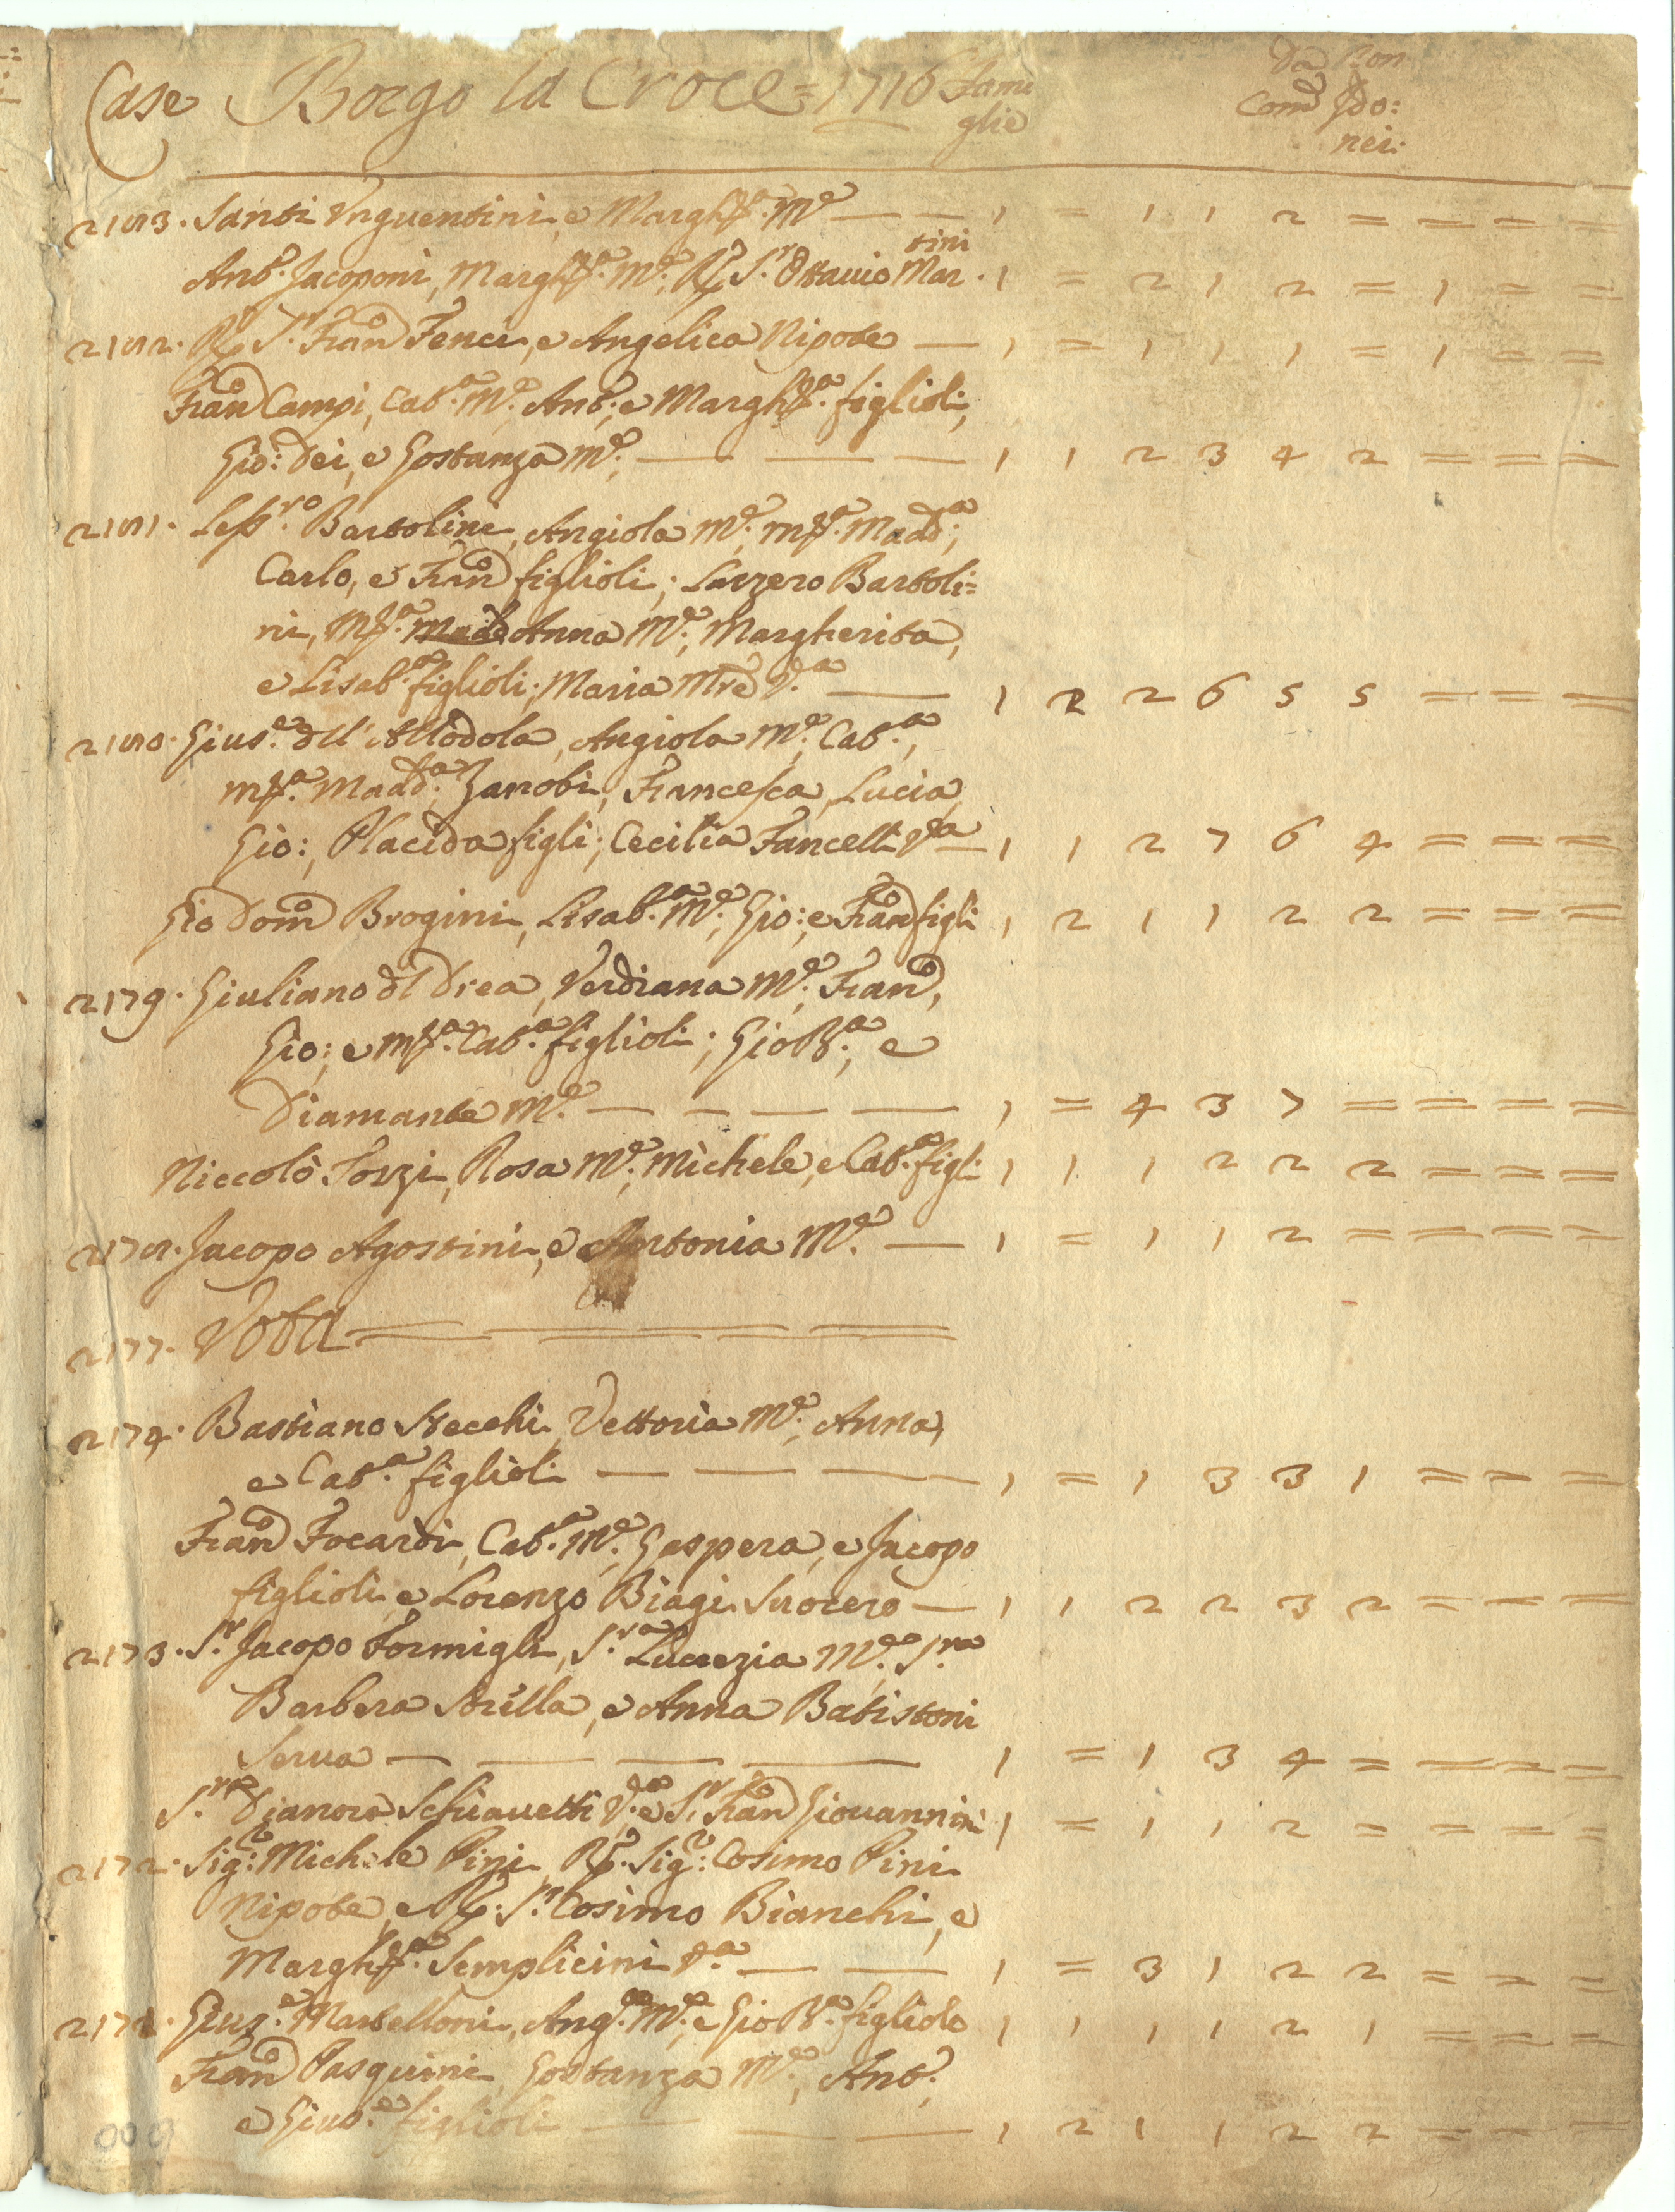 Case Borgo la Croce = 1716 Fami
glie
Da Non
Com̃ Ido:
nei:
2183. Santi Unguentini, e Margh.ta M.e — — 1 = 1 1 2 = = = =
tini
Ant.o Jacoponi, Margh.ta M.e, R. S.r Ottauio Mar. 1 = 2 1 2 = 1 = =
2182. R. S.r Fran.o Fenci, e Angelica Nipote — 1 = 1 1 1 = 1 = =
Fran.o Campi, Cat.a M.e, Ant.o, e Margh.ta figlioli,
Gio: Dei, e Gostanza M.e, — — — 1 1 2 3 4 2 = = =
2181. Less.ro Bartolini, Angiola M.e, M.a Madd.a,
Carlo, e Fran.o figlioli; Lazzero Bartoli=
ni, M.a Anna M.e, Margherita,
e Lisab.a figlioli; Maria Mrẽ V.a — 1 2 2 6 5 5 = = =
2180. Gius.e dell' Allodola, Angiola M.e, Cat.a,
M.a Madd.a, Zanobi, Francesca, Lucia,
Gio:, Placida figli; Cecilia Fancelli V.a — 1 1 2 7 6 4 = = =
Gio Dom.o Brogini, Lisab.a M.e, Gio:, e Fran.o figli 1 2 1 1 2 2 = = =
2179. Giuliano del Drea, Verdiana M.e, Fran.o,
Gio:, e M.a Cat.a figlioli; Gio B.a, e
Diamante M.e — — — — 1 = 4 3 7 = = = =
Niccolò Torzi, Rosa M.e, Michele, e Cat.a figli 1 1 1 2 2 2 = = =
2178. Jacopo Agostini, e Antonia M.e — 1 = 1 1 2 = = = =
2177. Vota = = = =
2174. Bastiano Stecchi, Vettoria M.e, Anna,
e Cat.a figlioli — — — 1 = 1 3 3 1 = = =
Fran.o Focardi, Cat.a M.e, Gaspera, e Jacopo
figlioli, e Lorenzo Biagi Suocero — 1 1 2 2 3 2 = = =
2173. S.r Jacopo Formigli, S.ra Lucrezia M.e, S.ra
Barbera Sorella, e Anna Batistoni
Serua — — — — 1 = 1 3 4 = = = =
S.ra Dianora Schiauetti V.a, e S.r Fran.o Giouannini 1 = 1 1 2 = = = =
2172. Sig.r Michele Pini, R. Sig.r Cosimo Pini
Nipote, e R. S.r Cosimo Bianchi, e
Margh.ta Semplicini V.a — — 1 = 3 1 2 2 = = =
2171. Gius.e Martelloni, Ang.a M.e, e Gio B.a figliolo 1 1 1 1 2 1 = = =
Fran.o Pasquini, Gostanza M.e, Ant.o,
e Gius.e figlioli — — — 1 2 1 1 2 2 = = =